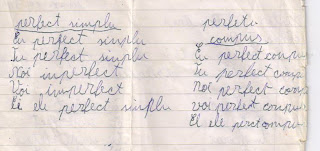 perfect simplu
Eu perfect simplu
Tu perfect simplu
Noi imperfect
Voi imperfect
Ei ele perfect simplu
perfetu
compus
Eu perfect compu
Tu perfect comp
Noi perfect comp
voi perfect compu
Ei ele perct compu